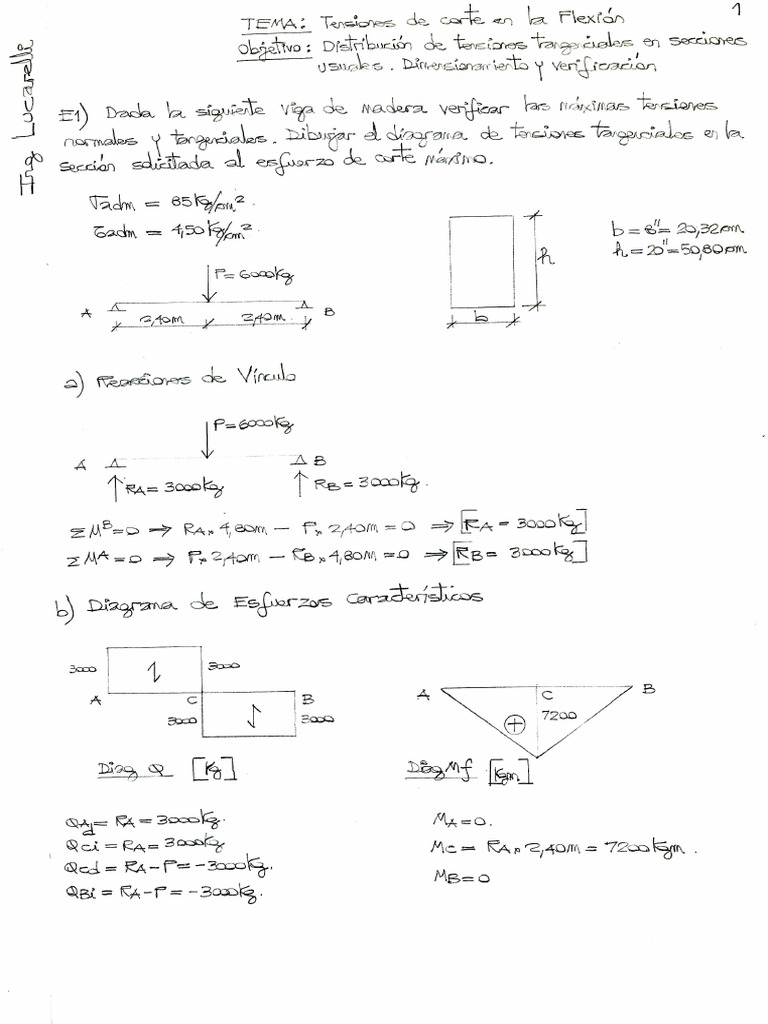 1
TEMA: Tensiones de corte en la Flexión
Objetivo: Distribución de tensiones tangenciales en secciones
usuales. Dimensionamiento y verificación
Ing Lucarelli
E1) Dada la siguiente viga de madera verificar las máximas tensiones
normales y tangenciales. Dibujar el diagrama de tensiones tangenciales en la
sección solicitada al esfuerzo de corte máximo.
σadm = 85 Kg/cm².
τadm = 4,50 Kg/cm²
b = 8" = 20,32cm
h = 20" = 50,80cm
P = 6000Kg
h
A B
2,40m 2,40m
b
a) Reacciones de Vínculo
P = 6000Kg
A B
RA = 3000Kg RB = 3000Kg.
ΣMB=0 ⇒ RA x 4,80m – P x 2,40m = 0 ⇒ [RA = 3000Kg]
ΣMA=0 ⇒ P x 2,40m – RB x 4,80m = 0 ⇒ [RB = 3000Kg]
b) Diagrama de Esfuerzos Característicos
3000 3000
A C B
3000 3000
A C B
7200
+
Diag Q [Kg]
Diag Mf [Kgm]
QAd = RA = 3000Kg.
Qci = RA = 3000Kg
Qcd = RA – P = – 3000Kg.
QBi = RA – P = – 3000Kg.
MA = 0.
Mc = RA x 2,40m = 7200Kgm.
MB = 0